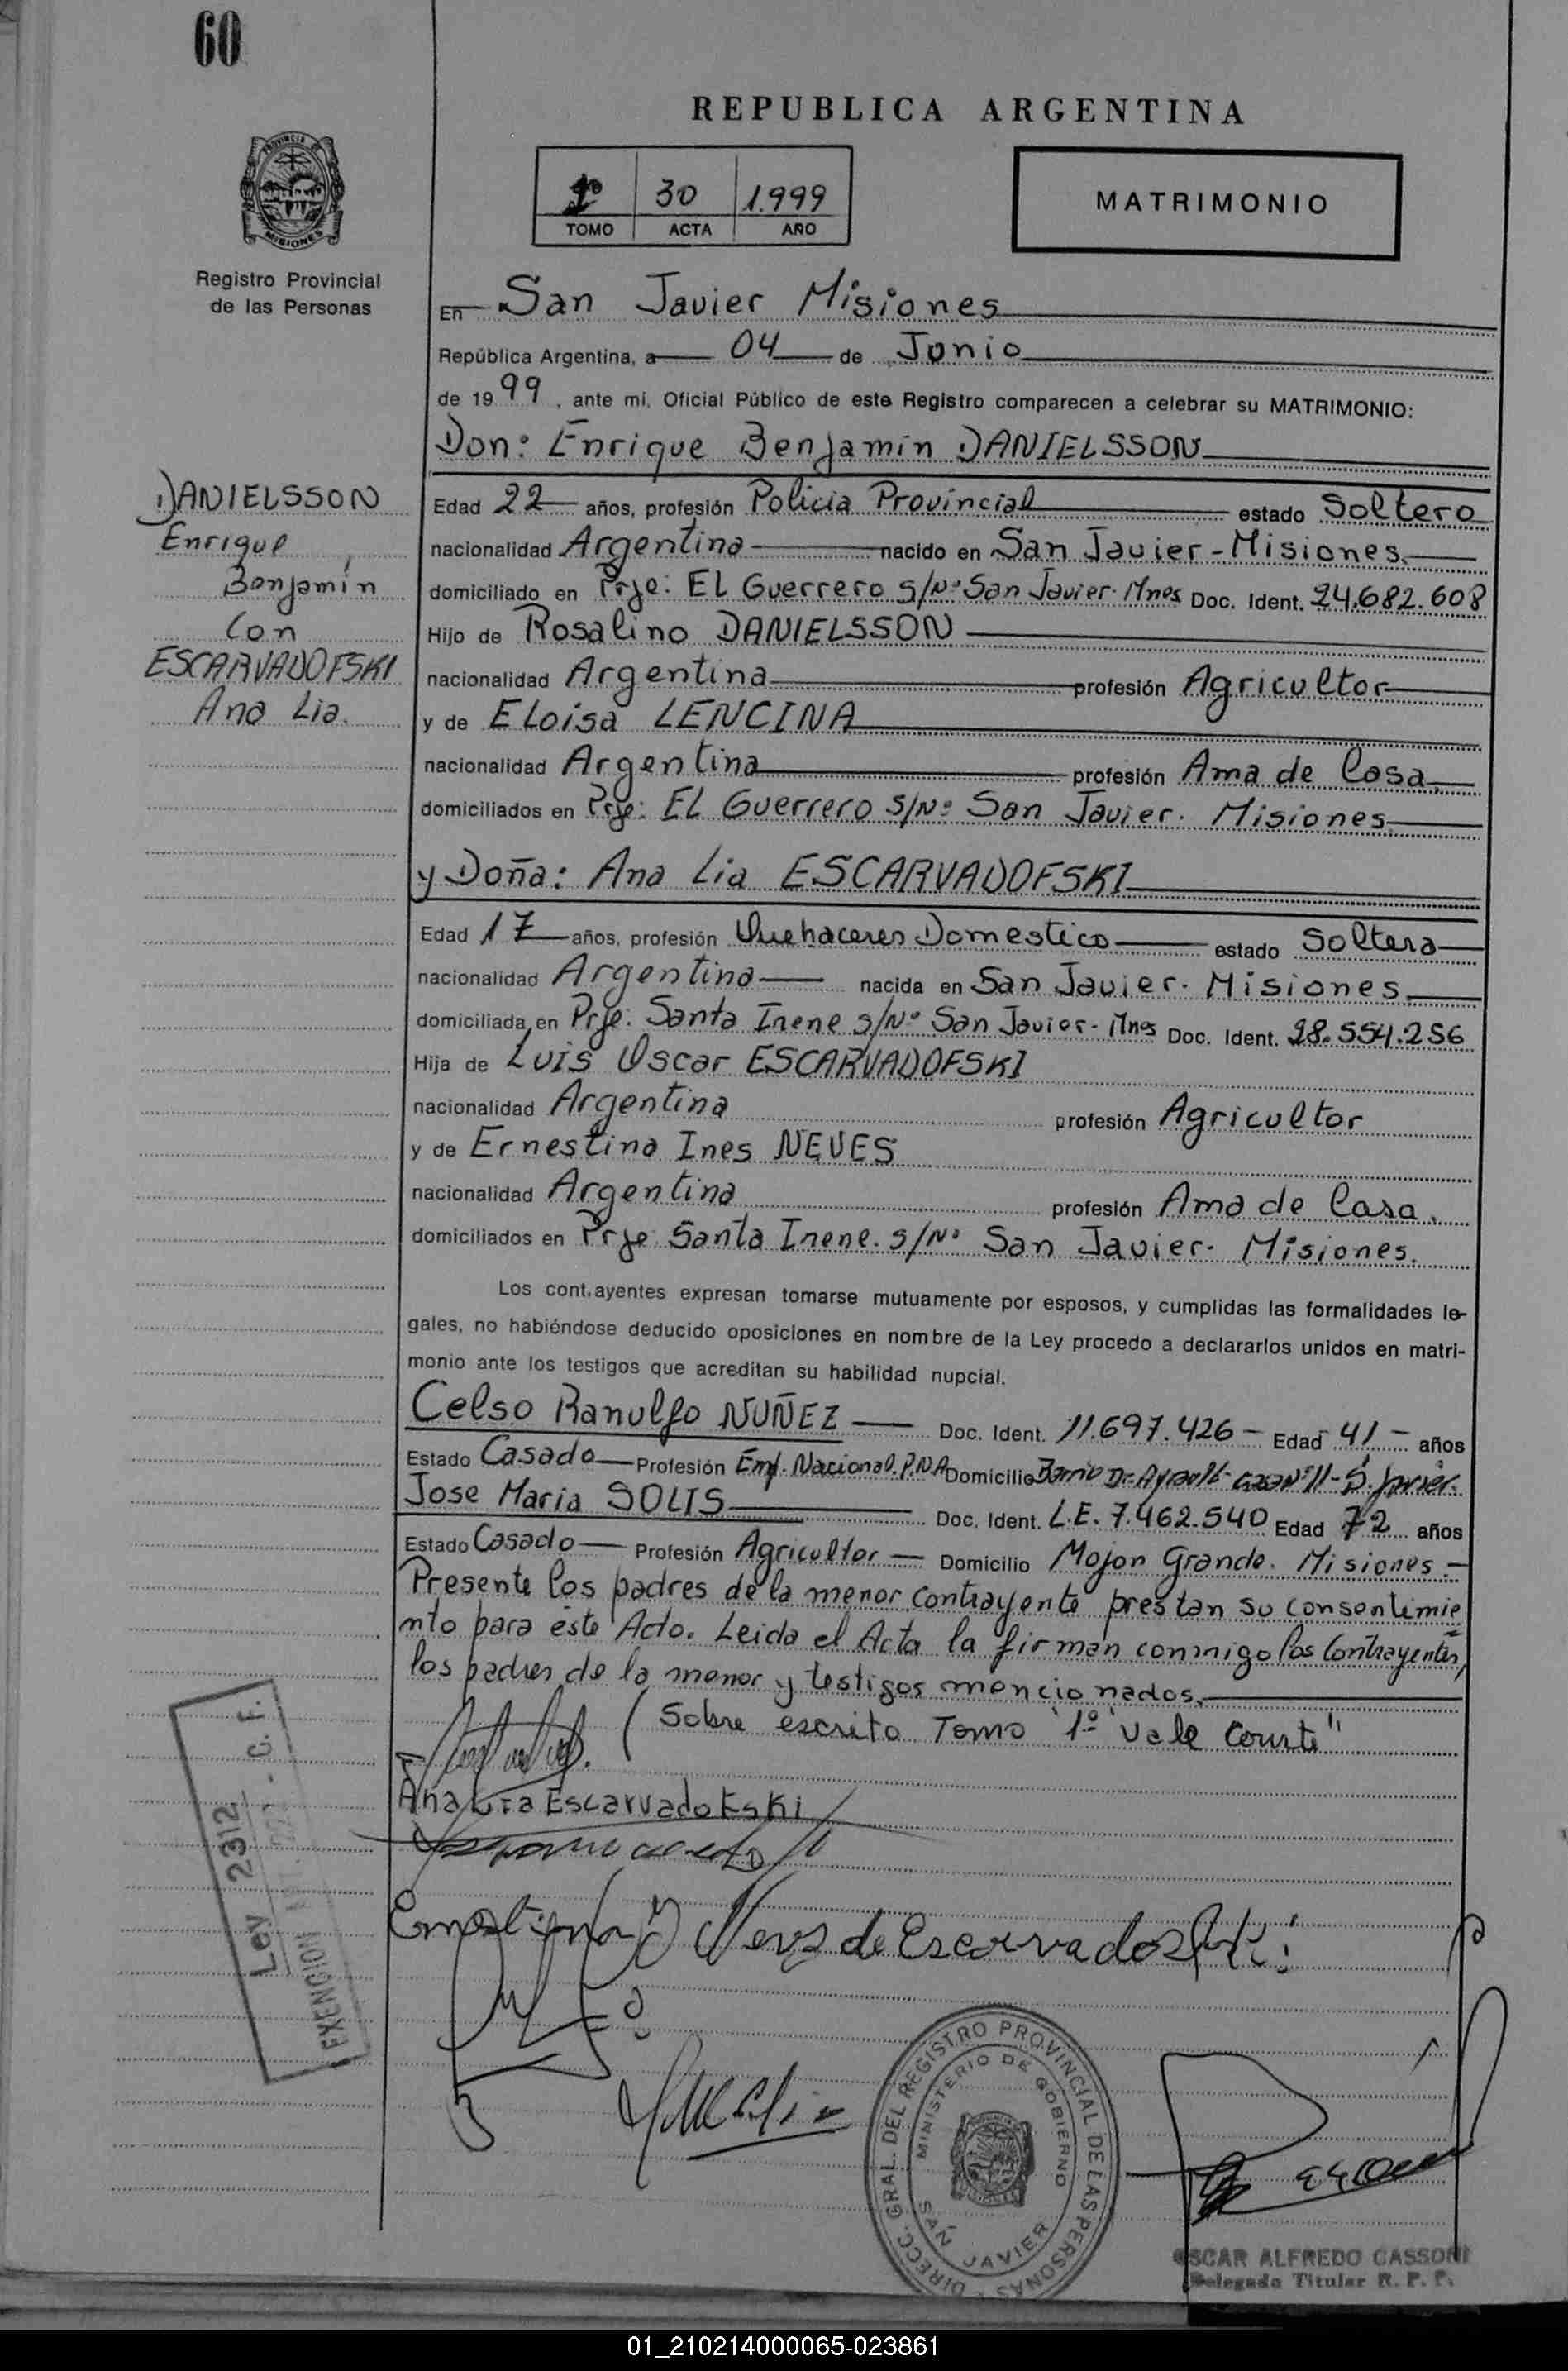 60
REPUBLICA ARGENTINA
1º 30 1.999
TOMO ACTA AÑO
MATRIMONIO
PROVINCIA DE
MISIONES
Registro Provincial
de las Personas
En San Javier Misiones
República Argentina, a 04 de Junio
de 1999, ante mi, Oficial Público de este Registro comparecen a celebrar su MATRIMONIO:
Don: Enrique Benjamin DANIELSSON
DANIELSSON
Enrique
Benjamín
Con
ESCARVADOFSKI
Ana Lia.
Edad 22 años, profesión Policia Provincial estado Soltero
nacionalidad Argentina nacido en San Javier - Misiones.
domiciliado en Prje: EL Guerrero S/Nº San Javier - Mnes Doc. Ident. 24.682.608
Hijo de Rosalino DANIELSSON
nacionalidad Argentina profesión Agricultor
y de ELoisa LENCINA
nacionalidad Argentina profesión Ama de Casa.
domiciliados en Prje: EL Guerrero S/Nº San Javier. Misiones
y Doña: Ana Lia ESCARVADOFSKI
Edad 17 años, profesión Quehaceres Domestico estado Soltera
nacionalidad Argentina nacida en San Javier. Misiones
domiciliada en Prje: Santa Inene S/Nº San Javier - Mnes Doc. Ident. 28.554.256
Hija de Luis Oscar ESCARVADOFSKI
nacionalidad Argentina profesión Agricultor
y de Ernestina Ines NEVES
nacionalidad Argentina profesión Ama de Casa.
domiciliados en Prje Santa Inene. S/Nº San Javier. Misiones.
Los cont.ayentes expresan tomarse mutuamente por esposos, y cumplidas las formalidades le-
gales, no habiéndose deducido oposiciones en nombre de la Ley procedo a declararlos unidos en matri-
monio ante los testigos que acreditan su habilidad nupcial.
Celso Ranulfo NUÑEZ Doc. Ident. 11.697.426 - Edad 41 - años
Estado Casado Profesión Emp. Nacional. P.N.A Domicilio Barrio Dr. Casa Nº 11 - S. Javier.
Jose Maria SOLIS Doc. Ident. L.E. 7.462.540 Edad 72 años
Estado Casado Profesión Agricultor Domicilio Mojon Grande. Misiones -
Presente los padres de la menor contrayente prestan su consentimie
nto para este Acto. Leida el Acta la firman conmigo los Contrayentes,
los padres de la menor y testigos mencionados.
(Sobre escrito Tomo "1º" Vale Conste"
Ana Lia EscarvadofsKi
Ernestina I Neves de Escarvadofski
Ley 2312
C. F.
EXENCION
DIRECC. GRAL. DEL REGISTRO PROVINCIAL DE LAS PERSONAS
MINISTERIO DE GOBIERNO
SAN JAVIER
OSCAR ALFREDO CASSONI
Delegado Titular R. P. P.
01_210214000065-023861